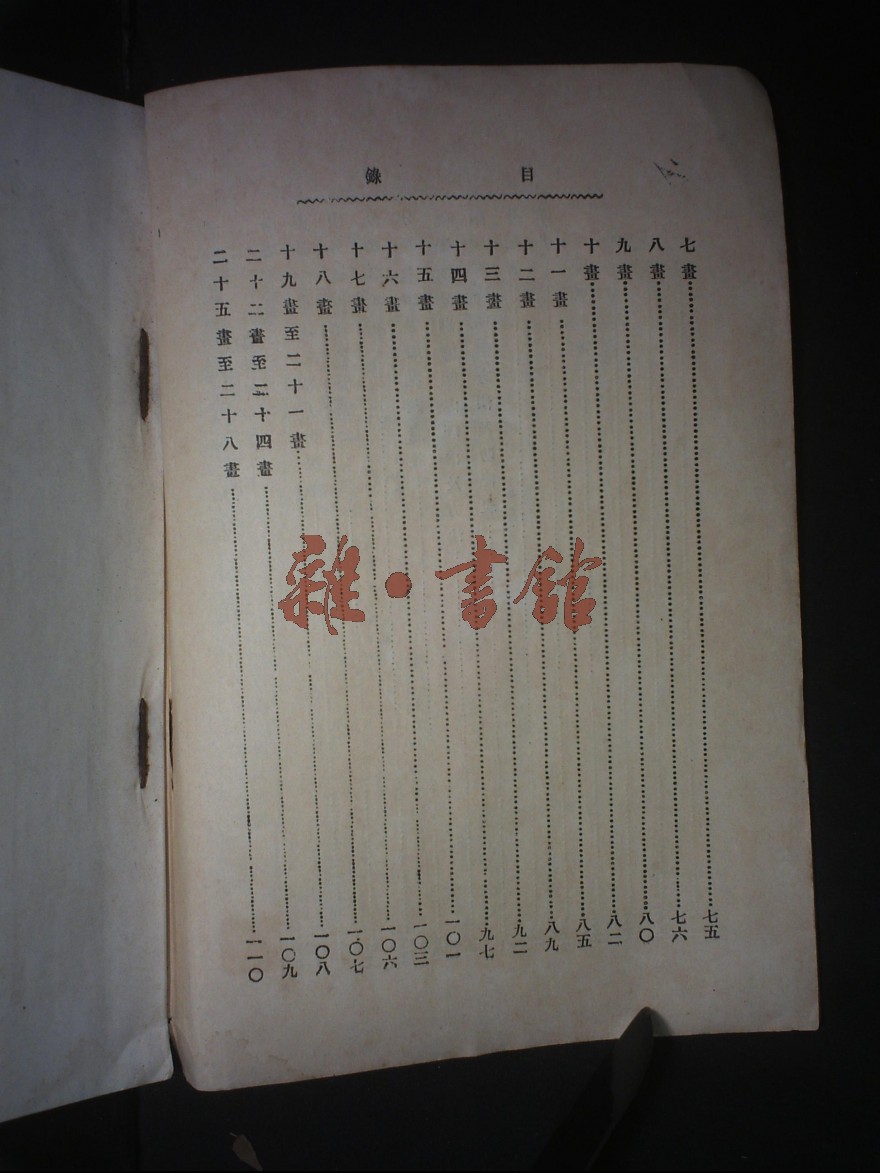 目錄
七畫……七五
八畫……七六
九畫……八〇
十畫……八二
十一畫……八五
十二畫……八九
十三畫……九二
十四畫……九七
十五畫……一〇一
十六畫……一〇三
十七畫……一〇六
十八畫……一〇七
十九畫至二十一畫……一〇八
二十二畫至二十四畫……一〇九
二十五畫至二十八畫……一一〇
雜·書館